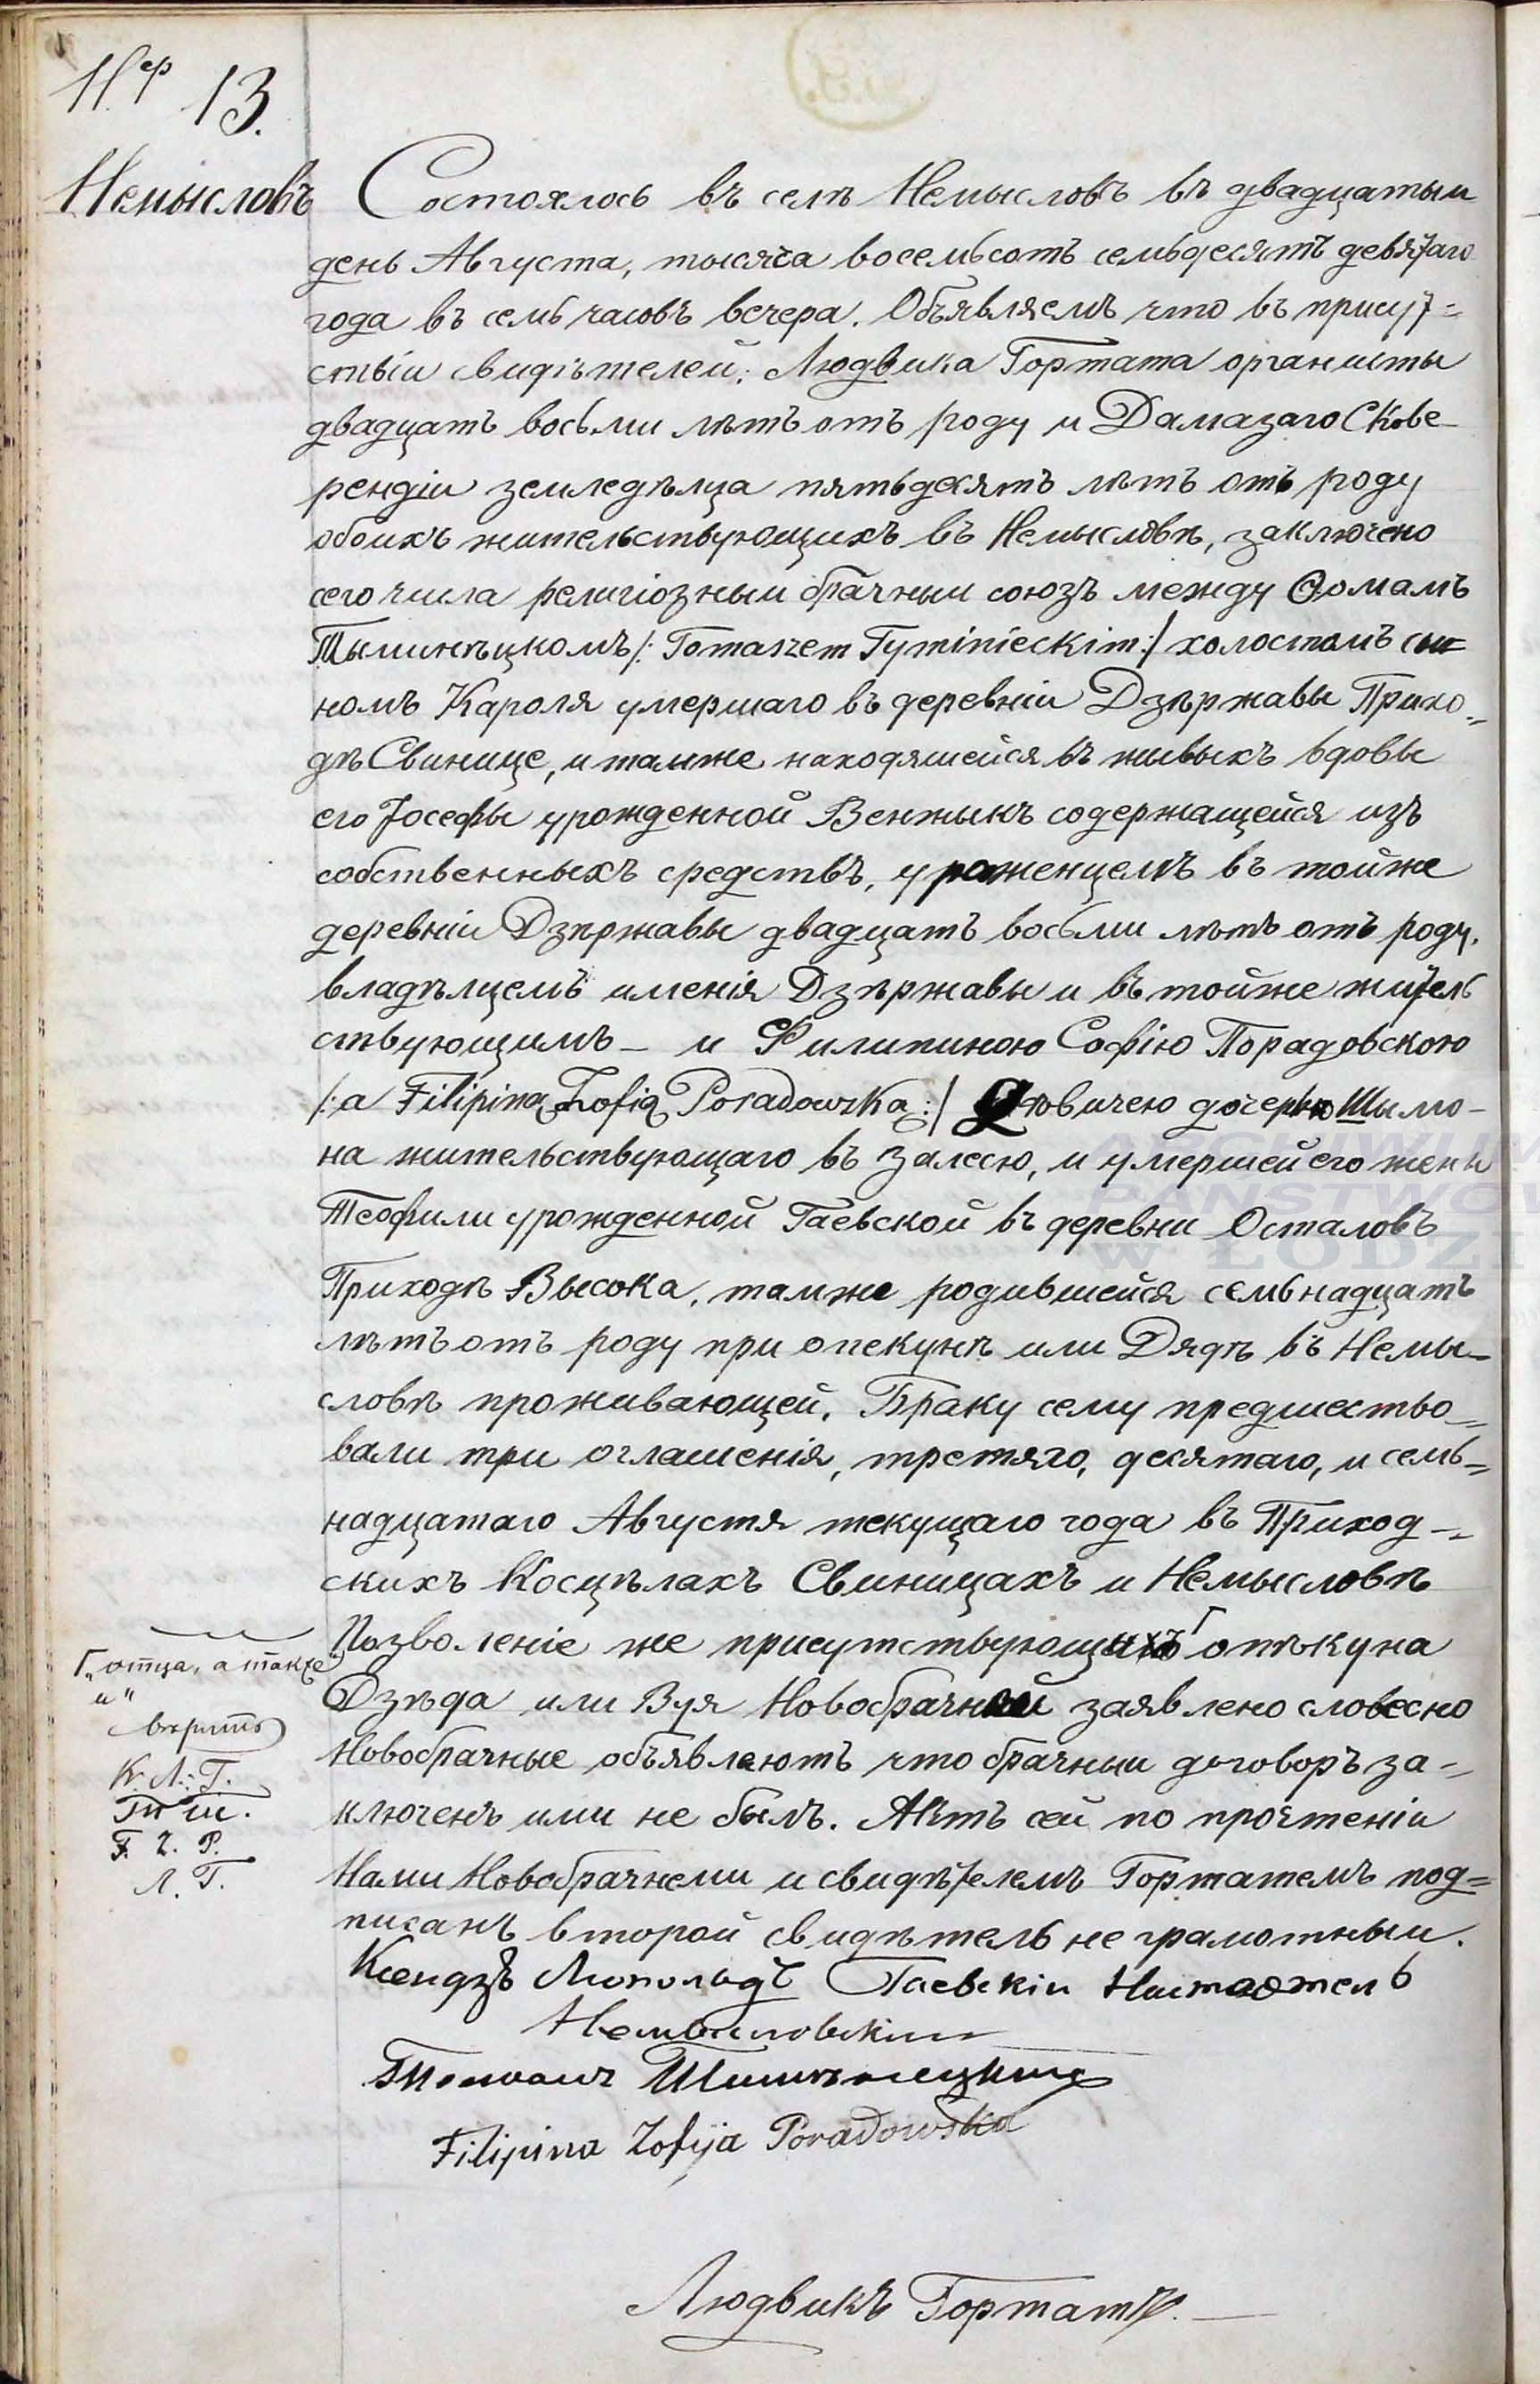 Нер 13.
Немысловъ
Состоялось въ селѣ Немысловѣ въ двадцатый
день Августа, тысяча восемьсотъ семьдесятъ девятаго
года въ семь часовъ вечера. Объявляемъ что въ присут=
ствіи свидѣтелей: Людвика Гортата органисты
двадцать восьми лѣтъ отъ роду и Дамазаго Скове-
рендіи земледѣлца пятьдесятъ лѣтъ отъ роду
обоихъ жительствующихъ въ Немысловѣ, заключено
сего числа религіозный брачный союзъ между Ѳомамъ
Тыминѣцкомъ /: Tomaszem Tyminieckim :/ холостомъ сы=
номъ Кароля умершаго въ деревніи Дзѣржавы Прихо=
дѣ Свинице, и тамже находяшейся въ живыхъ вдовы
его Іосефы урожденной Венжыкъ содержащейся изъ
собственныхъ средствъ, уроженцемъ въ тойже
деревніи Дзѣржавы двадцать восьми лѣтъ отъ роду,
владѣлцемъ именія Дзѣржавы и въ тойже житель
ствующимъ - и Филипиною Софію Порадовскою
/: a Filipiną Zofią Poradowską :/ Дѣвичею дочерью Шымо-
на жительствующаго въ Залесю, и умершей его жены
Теофили урожденной Гаевской въ деревни Осталовъ
Приходѣ Высока, тамже родившейся семьнадцать
лѣтъ отъ роду при опекунѣ или Дядѣ въ Немы-
словѣ проживающей. Браку сему предшество=
вали три оглашенія, третяго, десятаго, и семь=
надцатаго Августя текущаго года въ Приход-
скихъ Косцѣлахъ Свиницахъ и Немысловѣ
Позволеніе же присутствующихъ Г опѣкуна
Г„отца, а также
и"
Дзѣда или Вуя Новобрачной заявлено словесно
вѣритъ
Новобрачные объявляютъ что брачный договоръ за=
К. Л. Г.
ключенъ ими не былъ. Актъ сей по прочтеніи
Т Ш.
F. Z. P.
Нами Новобрачнеми и свидѣтелемъ Гортатемъ под=
Л. Г.
писанъ второй свидѣтель не грамотный.
Ксендзъ Леопольдъ Гаевскій Настоятель
Немысловскій
Filipina Zofija Poradowska
Людвикъ Гортатъ.
ARCHIWUM
PAŃSTWOW
w ŁODZI